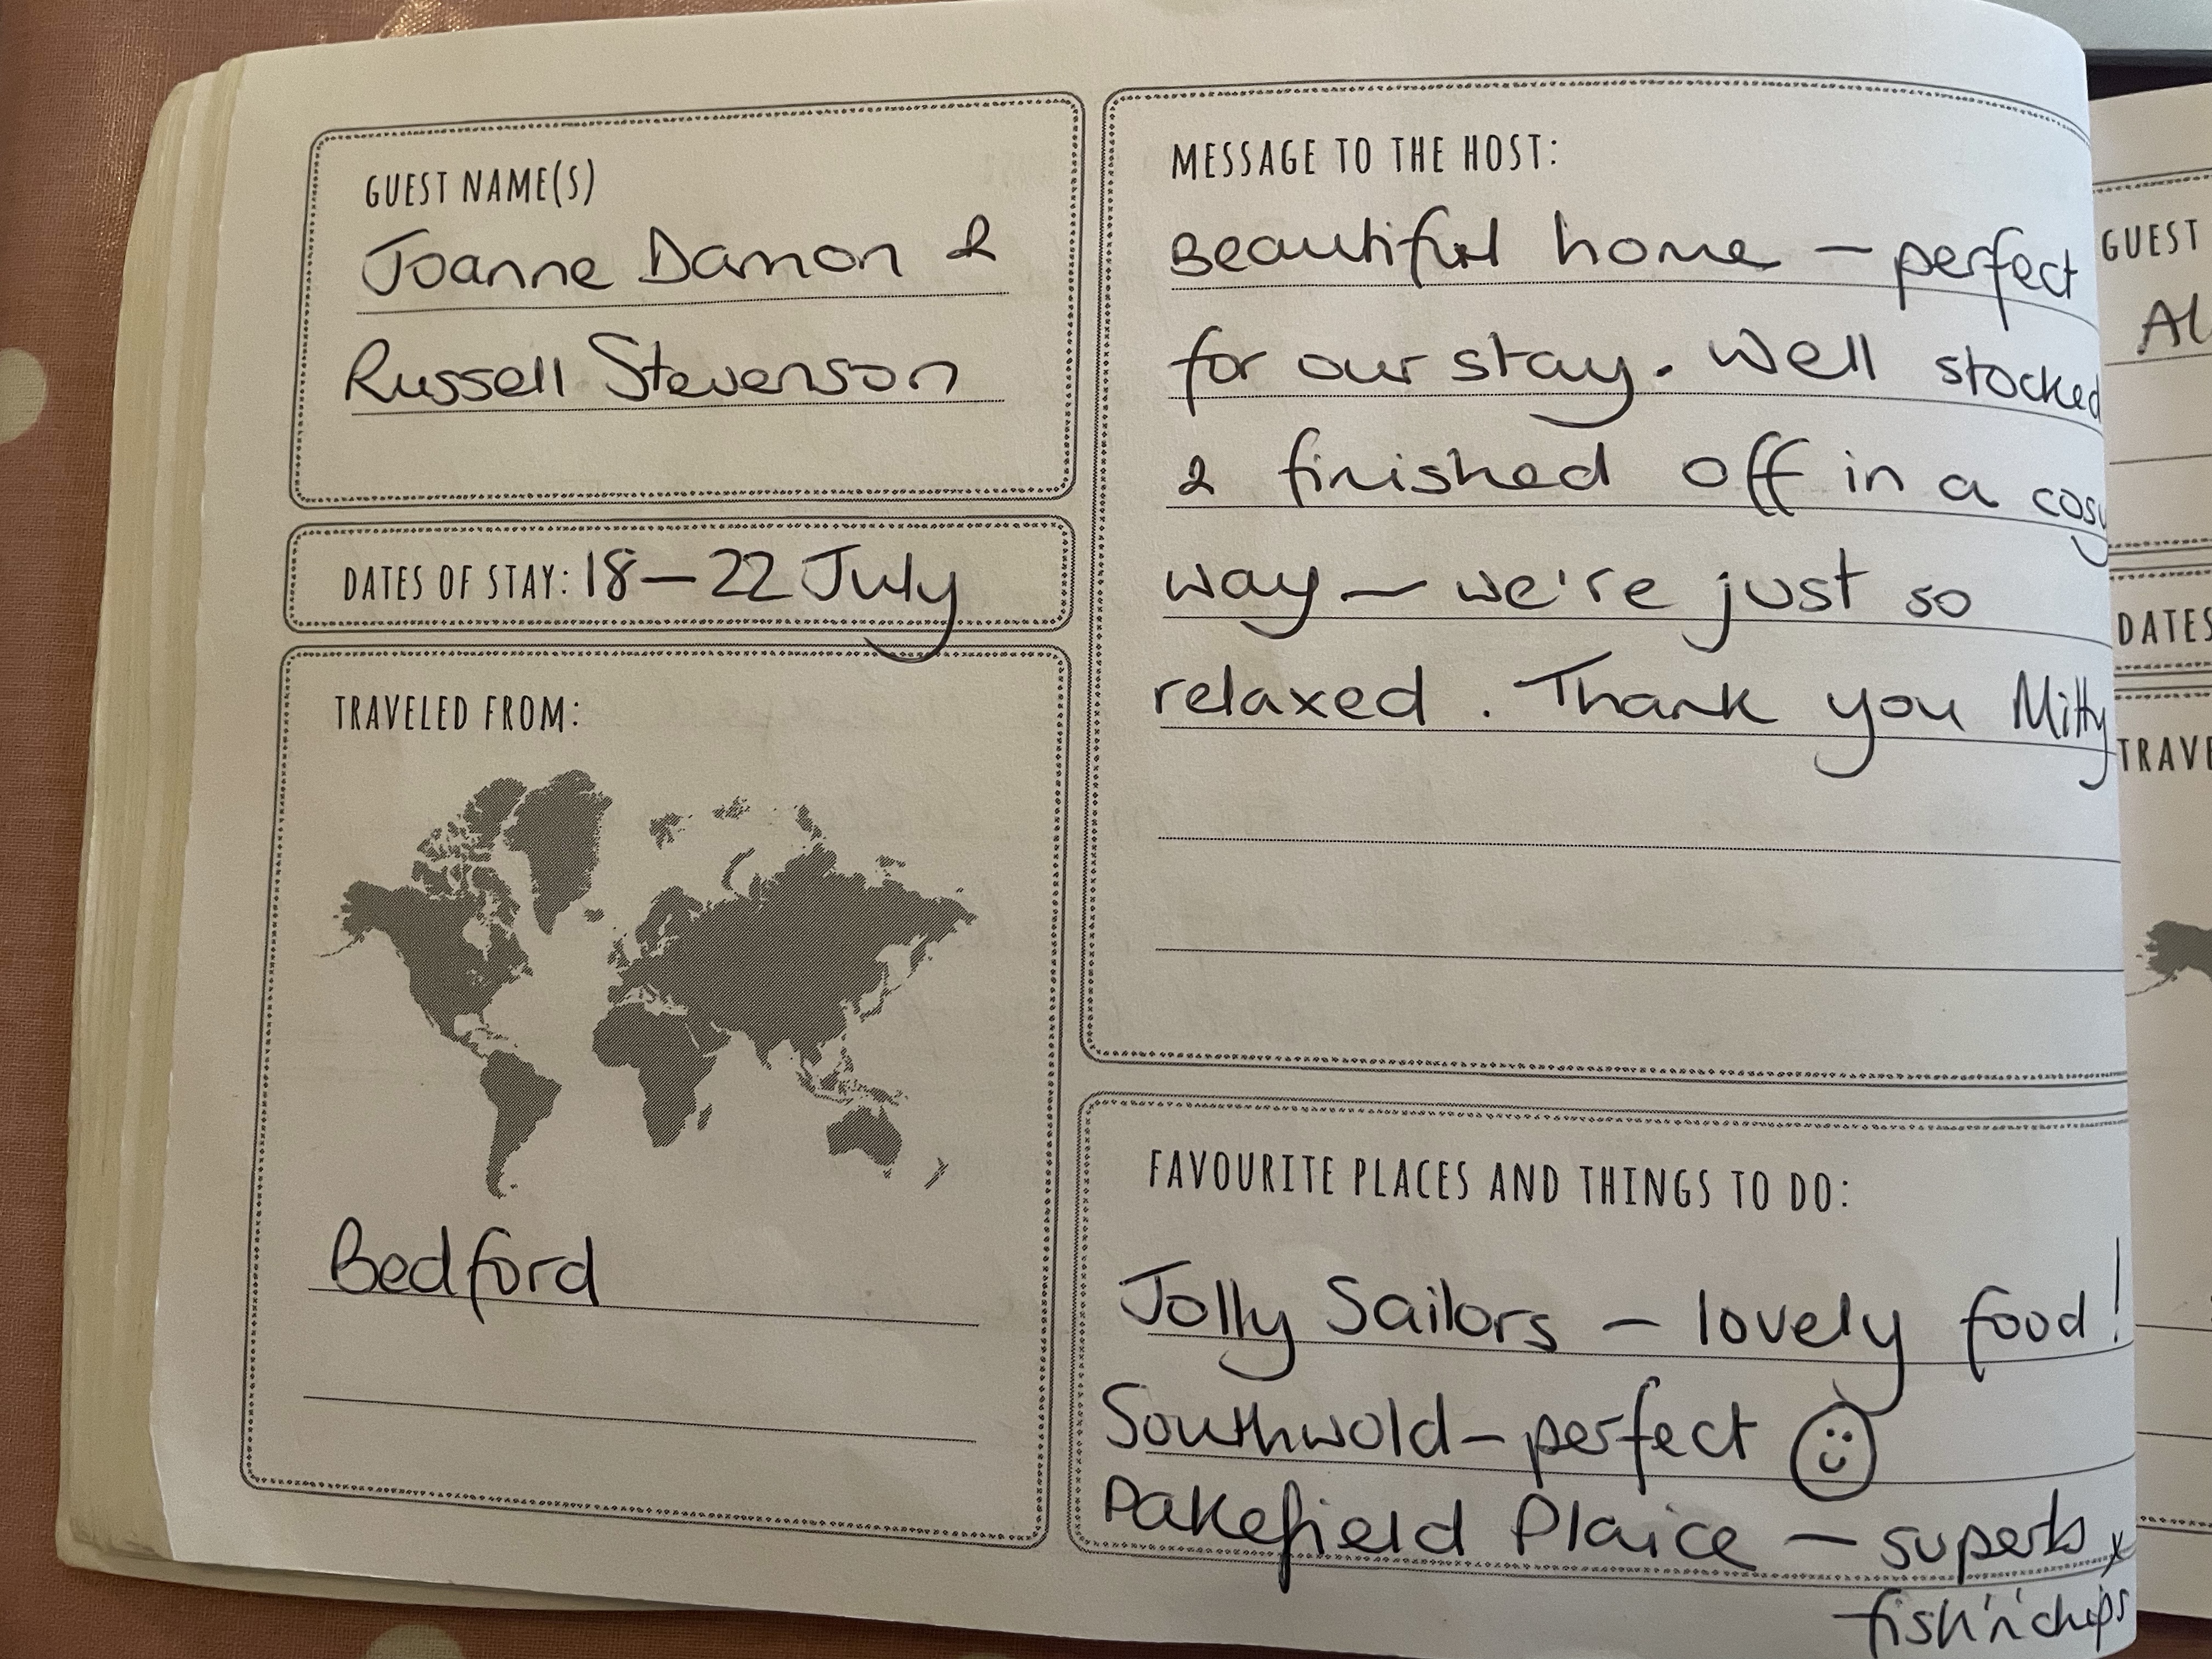 GUEST NAME(S)
Joanne Damon &
Russell Stevenson
DATES OF STAY: 18 – 22 July
TRAVELED FROM:
Bedford
MESSAGE TO THE HOST:
Beautiful home – perfect
for our stay. Well stocked
& finished off in a cosy
way – we're just so
relaxed. Thank you Mitty
FAVOURITE PLACES AND THINGS TO DO:
Jolly Sailors – lovely food!
Southwold – perfect ☺
Pakefield Plaice – superb x
fish 'n' chips
GUEST
Al
DATES
TRAVE